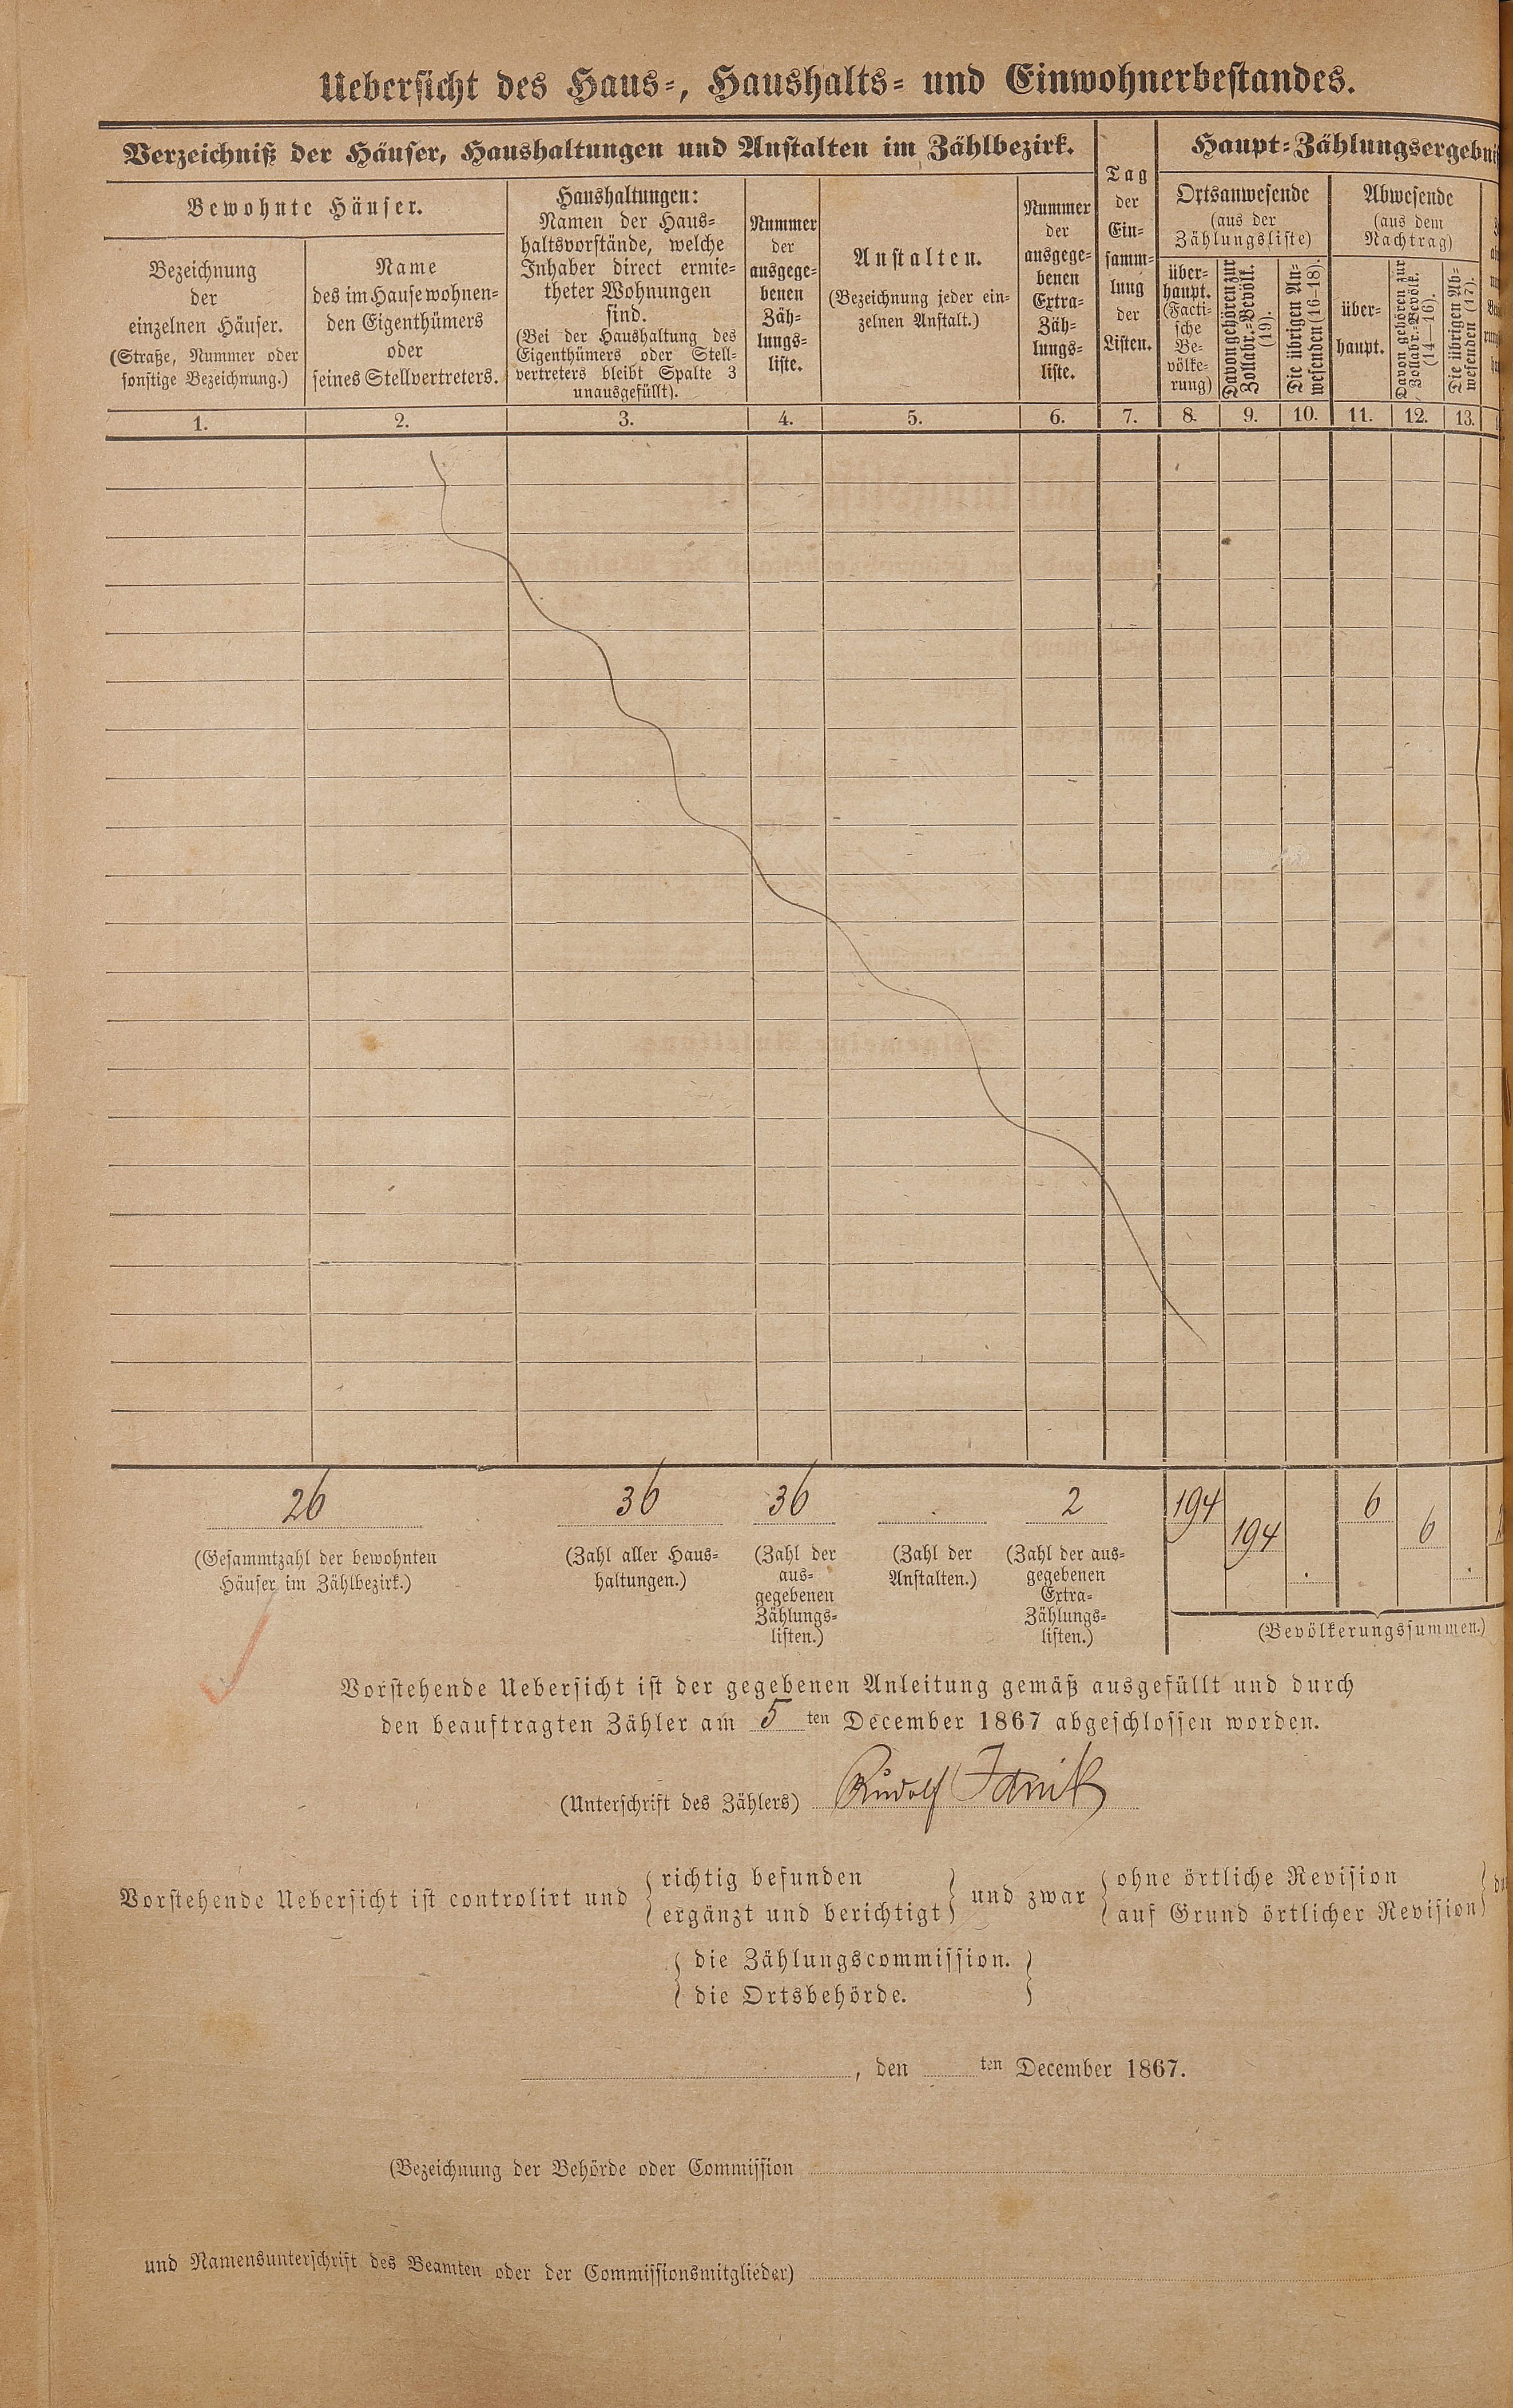 Uebersicht des Haus-, Haushalts- und Einwohnerbestandes.
Verzeichniß der Häuser, Haushaltungen und Anstalten im Zählbezirk.
Tag
der
Ein-
samm-
lung
der
Listen.
Haupt-Zählungsergebni
Bewohnte Häuser.
Bezeichnung
der
einzelnen Häuser.
(Straße, Nummer oder
sonstige Bezeichnung.)
Name
des im Hause wohnen-
den Eigenthümers
oder
seines Stellvertreters.
Haushaltungen:
Namen der Haus-
haltsvorstände, welche
Inhaber direct ermie-
theter Wohnungen
sind.
(Bei der Haushaltung des
Eigenthümers oder Stell-
vertreters bleibt Spalte 3
unausgefüllt).
Nummer
der
ausgege-
benen
Zäh-
lungs-
liste.
Anstalten.
(Bezeichnung jeder ein-
zelnen Anstalt.)
Nummer
der
ausgege-
benen
Extra-
Zäh-
lungs-
liste.
Ortsanwesende
(aus der
Zählungsliste)
über-
haupt.
(Facti-
sche
Be-
völke-
rung)
Davon gehören zur
Zollabr.-Bevölk.
(19).
Die übrigen An-
wesenden (16-18).
Abwesende
(aus dem
Nachtrag)
über-
haupt.
Davon gehören zur
Zollabr.-Bevölk.
(14-16).
Die übrigen Ab-
wesenden (17).
1. 2. 3. 4. 5. 6. 7. 8. 9. 10. 11. 12. 13.
26 36 36 . 2 194 194 . 6 6 .
(Gesammtzahl der bewohnten
Häuser im Zählbezirk.)
(Zahl aller Haus-
haltungen.)
(Zahl der
aus-
gegebenen
Zählungs-
listen.)
(Zahl der
Anstalten.)
(Zahl der aus-
gegebenen
Extra-
Zählungs-
listen.)
(Bevölkerungssummen.)
Vorstehende Uebersicht ist der gegebenen Anleitung gemäß ausgefüllt und durch
den beauftragten Zähler am 5 ten December 1867 abgeschlossen worden.
(Unterschrift des Zählers) Rudolf
Vorstehende Uebersicht ist controlirt und { richtig befunden
ergänzt und berichtigt } und zwar { ohne örtliche Revision
auf Grund örtlicher Revision }
{ die Zählungscommission.
die Ortsbehörde. }
, den ten December 1867.
(Bezeichnung der Behörde oder Commission
und Namensunterschrift des Beamten oder der Commissionsmitglieder)